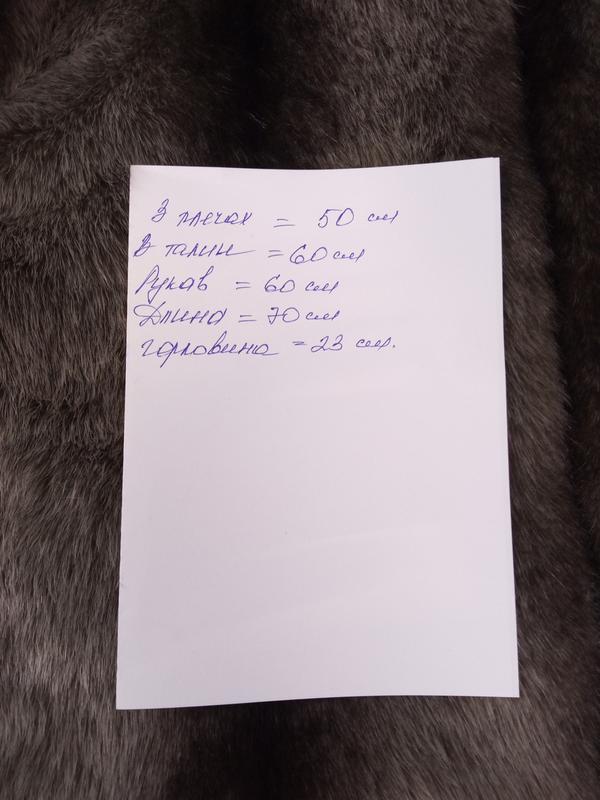 В плечах = 50 см
В талии = 60 см
Рукав = 60 см
Длина = 70 см
горловина = 23 см.